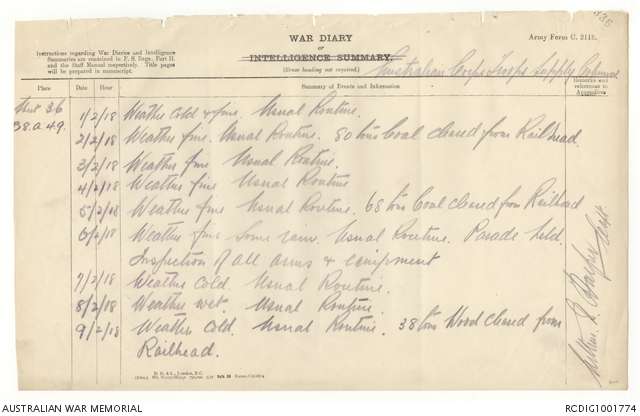 336
WAR DIARY
or
INTELLIGENCE SUMMARY.
(Erase heading not required.)
Army Form C. 2118.
Instructions regarding War Diaries and Intelligence
Summaries are contained in F. S. Regs., Part II.
and the Staff Manual respectively. Title pages
will be prepared in manuscript.
Australian Corps Troops Supply Column
Place Date Hour Summary of Events and Information Remarks and references to Appendices
Sheet 36 1/2/18 Weather cold & fine. Usual Routine.
38.a.4.9. 2/2/18 Weather fine. Usual Routine. 50 tons Coal cleared from Railhead.
3/2/18 Weather fine Usual Routine.
4/2/18 Weather fine Usual Routine
5/2/18 Weather fine Usual Routine. 68 tons Coal cleared from Railhead
6/2/18 Weather fine some rain. Usual Routine. Parade held.
Inspection of all arms & equipment
7/2/18 Weather cold. Usual Routine.
8/2/18 Weather wet. Usual Routine.
9/2/18 Weather Cold. Usual Routine. 38 tons Wood cleared from
Railhead.
AUSTRALIAN WAR MEMORIAL
RCDIG1001774